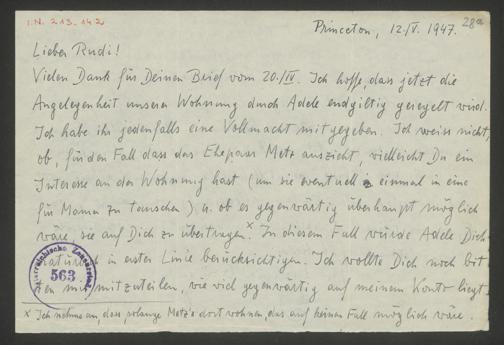 I.N. 213.142
Princeton, 12./V. 1947.
28a
Lieber Rudi!
Vielen Dank für Deinen Brief vom 20./IV. Ich hoffe, dass jetzt die
Angelegenheit unserer Wohnung durch Adele endgiltig geregelt wird.
Ich habe ihr jedenfalls eine Vollmacht mitgegeben. Ich weiss nicht,
ob, für den Fall dass das Ehepaar Metz auszieht, vielleicht Du ein
Interesse an der Wohnung hast (um sie eventuell einmal in eine
für Mama zu tauschen) u. ob es gegenwärtig überhaupt möglich
wäre, sie auf Dich zu übertragen.x In diesem Fall würde Adele Dich
natürlich in erster Linie berücksichtigen. Ich wollte Dich noch bit
ten mir mitzuteilen, wie viel gegenwärtig auf meinem Konto liegt.
563
x Ich nehme an, dass solange Metz's dort wohnen, das auf keinen Fall möglich wäre.